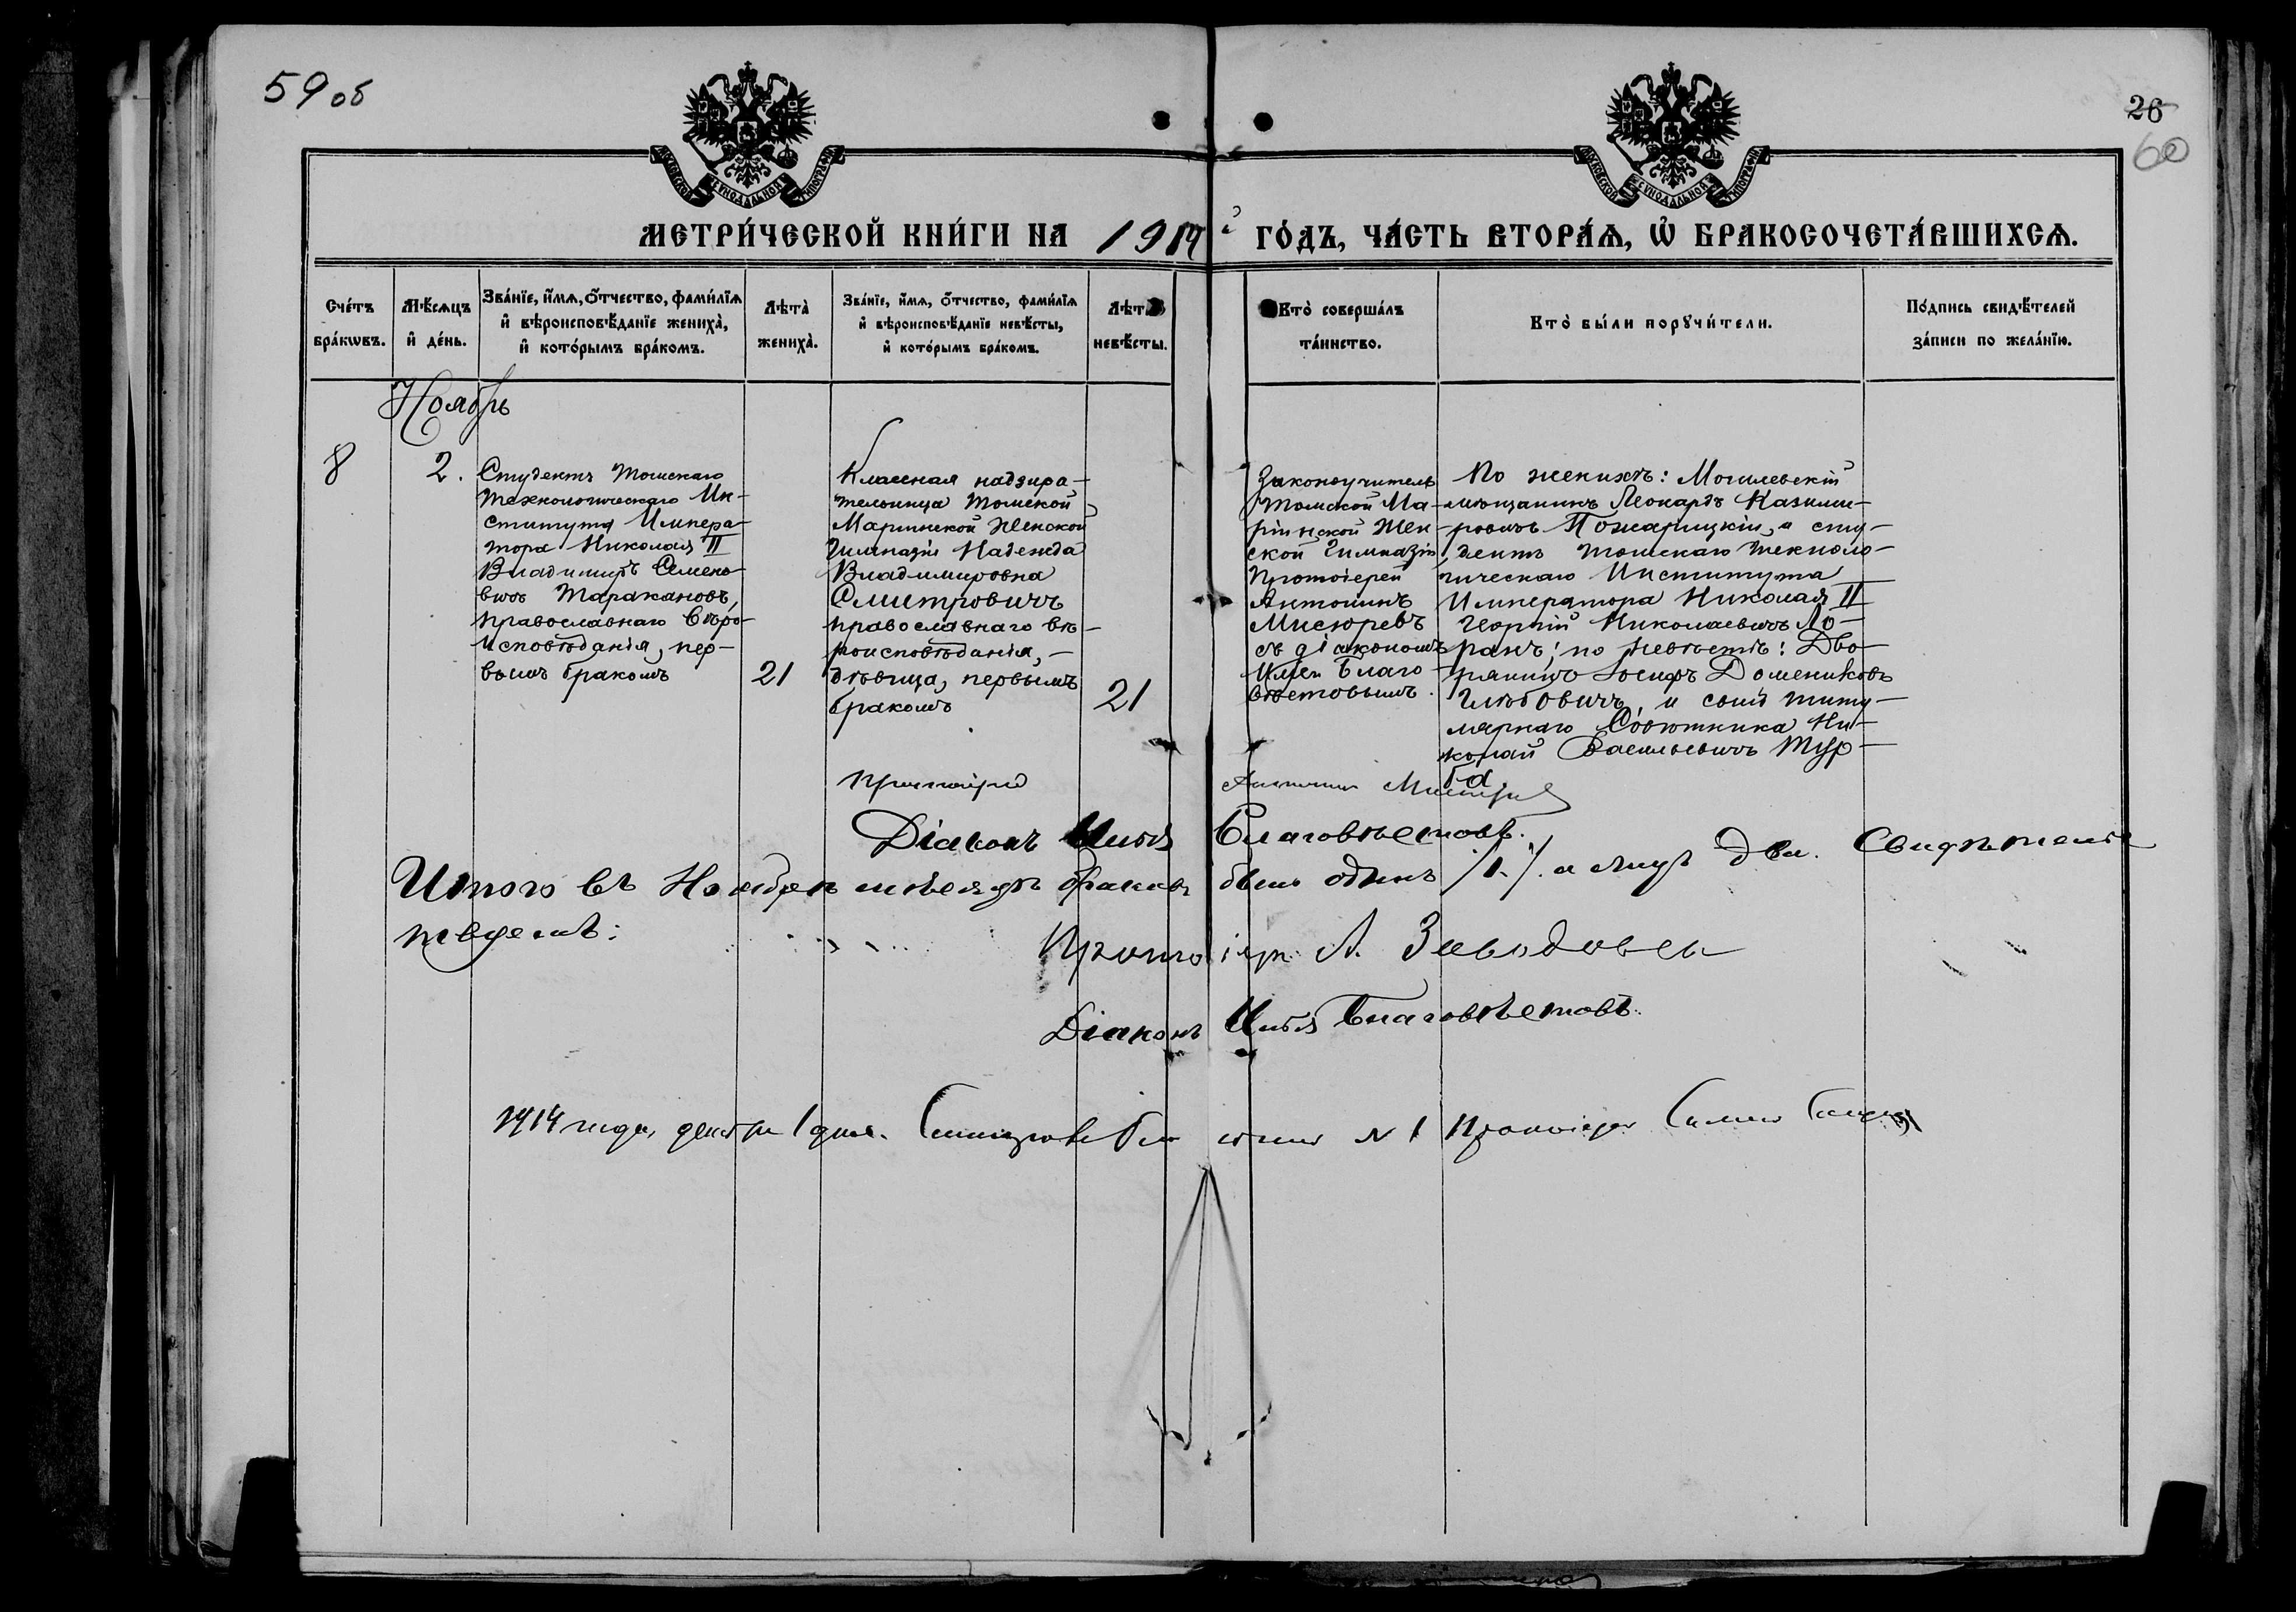 59 об
26
60
МОСКОВСКОЙ СѴНОДАЛЬНОЙ ТИПОГРАФІИ
МОСКОВСКОЙ СѴНОДАЛЬНОЙ ТИПОГРАФІИ
МЕТРИ́ЧЕСКОЙ КНИ́ГИ НА 1914 й ГО́ДЪ, ЧА́СТЬ ВТОРА́Ѧ, Ѽ БРАКОСОЧЕТА́ВШИХСѦ.
Сче́тъ
бра́кѡвъ.
Мѣ́сѧцъ
и҆ де́нь.
Зва́нїе, и҆́мѧ, ѻ҆́тчество, фами́лїѧ
и҆ вѣроисповѣ́данїе жениха̀,
и҆ кото́рымъ бра́комъ.
Лѣта̀
жениха̀.
Зва́нїе, и҆́мѧ, ѻ҆́тчество, фами́лїѧ
и҆ вѣроисповѣ́данїе невѣ́сты,
и҆ кото́рымъ бра́комъ.
Лѣта̀
невѣ́сты.
Кто̀ соверша́лъ
та́инство.
Кто̀ бы́ли порꙋчи́тели.
По́дпись свидѣ́телей
за́писи по жела́нїю.
Ноябрь
8
2.
Студентъ Томскаго
Технологическаго Ин-
ститута Импера-
тора Николая II
Владимиръ Семено-
вичъ Таракановъ,
православнаго Вѣро-
исповѣданія, пер-
вымъ бракомъ
21
Классная надзира-
тельница Томской
Маріинской Женской
Гимназіи Надежда
Владимировна
Смитровичъ
православнаго вѣ-
роисповѣданія, -
дѣвица, первымъ
бракомъ
21
Законоучитель
Томской Ма-
ріинской Жен-
ской Гимназіи
Протоіерей
Антонинъ
Мисюревъ
съ діакономъ
Ильей Благо-
вѣстовымъ.
По женихѣ: Могилевскій
мѣщанинъ Леонардъ Казими-
ровичъ Пожарицкій, и сту-
дентъ Томскаго Техноло-
гическаго Института
Императора Николая II
Георгій Николаевичъ Ло-
ранъ; по невѣстѣ: Дво-
рянинъ Іосифъ Домениковъ
Глѣбовичъ, и сынъ титу-
лярнаго Совѣтника Ни-
колай Васильевичъ Тур-
ба
Протоіерей Антонинъ Мисюревъ
Діаконъ Илія Благовѣстовъ.
Итого въ Ноябрѣ мѣсяцѣ браковъ былъ одинъ /1./. а лицъ два. Свидѣтель-
ствуемъ:
Протоіер. А. Заводовск
Діаконъ Илія Благовѣстовъ.
1914 года, декабря 1 дня. № 1 Протоіерей